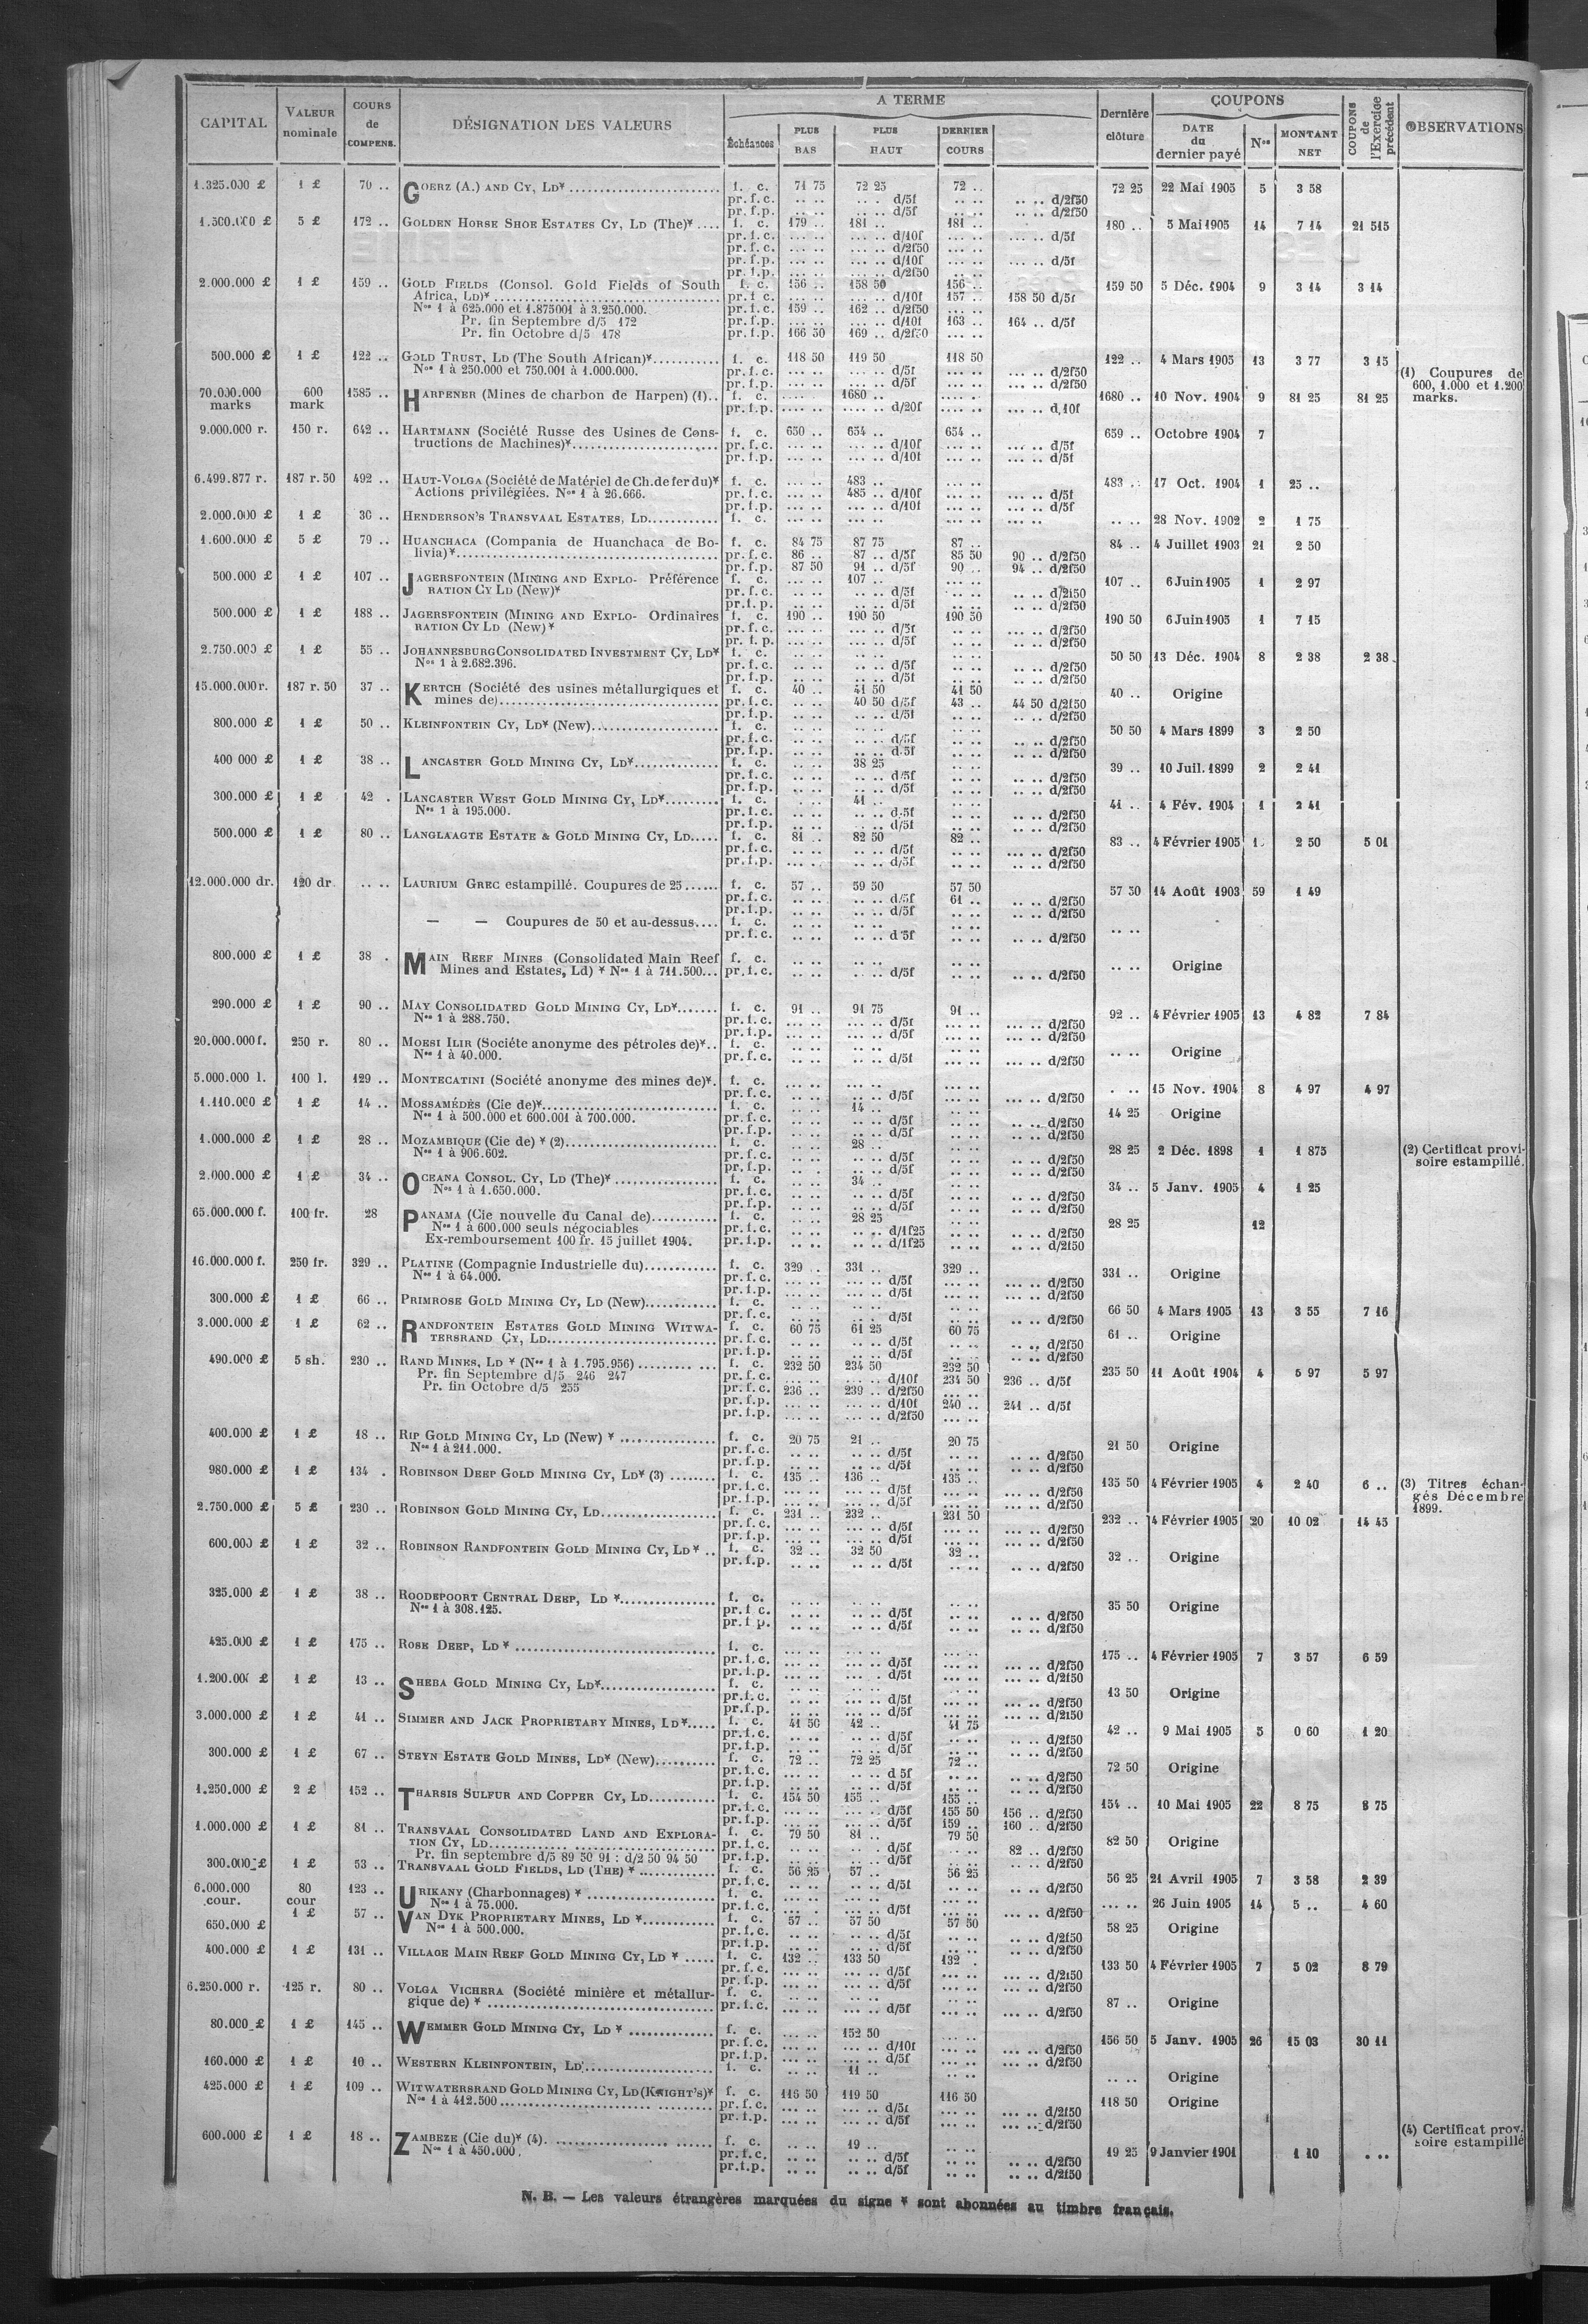 CAPITAL | VALEUR nominale | COURS de COMPENS. | DÉSIGNATION DES VALEURS | A TERME | Dernière clôture | COUPONS | COUPONS de l'Exercice précédent | OBSERVATIONS
Échéances | PLUS BAS | PLUS HAUT | DERNIER COURS | DATE du dernier payé | Nos | MONTANT NET
1.325.000 £ 1 £ 70 .. GOERZ (A.) AND CY, LD* f. c. 71 75 72 25 72 .. 72 25 22 Mai 1905 5 3 58
pr. f.c. .. .. .. . d/5f .. .. .. .. d/2f50
pr. f.p. .. .. .. .. d/5f .. .. .. .. d/2f50
1.500.000 £ 5 £ 172 .. GOLDEN HORSE SHOE ESTATES CY, LD (The)* f. c. 179 .. 181 .. 181 .. 180 .. 5 Mai 1905 14 7 14 21 515
pr. f.c. ... .. ... .. d/10f ... .. ... .. d/5f
pr. f.c. ... .. ... .. d/2f50 ... ..
pr. f.p. ... .. ... .. d/10f ... .. ... .. d/5f
pr. f.p. ... .. ... .. d/2f50 ... ..
2.000.000 £ 1 £ 159 .. GOLD FIELDS (Consol. Gold Fields of South f. c. 156 .. 158 50 156 .. 159 50 5 Déc. 1904 9 3 14 3 14
Africa, LD)* pr. f.c. ... .. ... .. d/10f 157 .. 158 50 d/5f
Nos 1 à 625.000 et 1.875001 à 3.250.000. pr. f.c. 159 .. 162 .. d/2f50 ... ..
Pr. fin Septembre d/5 172 pr. f.p. ... .. ... .. d/10f 163 .. 164 .. d/5f
Pr. fin Octobre d/5 178 pr. f.p. 166 50 169 .. d/2f50 ... ..
500.000 £ 1 £ 122 .. GOLD TRUST, LD (The South African)* f. c. 118 50 119 50 118 50 122 .. 4 Mars 1905 13 3 77 3 15
Nos 1 à 250.000 et 750.001 à 1.000.000. pr. f.c. ... .. ... .. d/5f ... .. ... .. d/2f50
pr. f.p. ... .. ... .. d/5f ... .. ... .. d/2f50
(1) Coupures de 600, 1.000 et 1.200 marks.
70.000.000 marks 600 mark 1585 .. HARPENER (Mines de charbon de Harpen) (1).. f. c. .... 1680 .. .... .. 1680 .. 10 Nov. 1904 9 81 25 81 25
pr. f.p. .... .. .... .. d/20f .... .. ... .. d/10f
9.000.000 r. 150 r. 642 .. HARTMANN (Société Russe des Usines de Cons- f. c. 650 .. 654 .. 654 .. 659 .. Octobre 1904 7
tructions de Machines)* pr. f.c. ... .. ... .. d/10f ... .. ... .. d/5f
pr. f.p. ... .. ... .. d/10f ... .. ... .. d/5f
6.499.877 r. 187 r. 50 492 .. HAUT-VOLGA (Société de Matériel de Ch. de fer du)* f. c. ... .. 483 .. ... .. 483 .. 17 Oct. 1904 1 25 ..
Actions privilégiées. Nos 1 à 26.666. pr. f.c. ... .. 485 .. d/10f ... .. ... .. d/5f
pr. f.p. ... .. ... .. d/10f ... .. ... .. d/5f
2.000.000 £ 1 £ 30 .. HENDERSON'S TRANSVAAL ESTATES, LD f. c. ... .. ... .. ... .. .. .. 28 Nov. 1902 2 1 75
1.600.000 £ 5 £ 79 .. HUANCHACA (Compania de Huanchaca de Bo- f. c. 84 75 87 75 87 .. 84 .. 4 Juillet 1903 21 2 50
livia)* pr. f.c. 86 .. 87 .. d/5f 85 50 90 .. d/2f50
pr. f.p. 87 50 91 .. d/5f 90 .. 94 .. d/2f50
500.000 £ 1 £ 107 .. JAGERSFONTEIN (MINING AND EXPLO- Préférence f. c. ... .. 107 .. ... .. 107 .. 6 Juin 1905 1 2 97
RATION CY LD (New)* pr. f.c. .. .. .. .. d/5f .. .. .. .. d/2f50
pr. f.p. .. .. .. .. d/5f .. .. .. .. d/2f50
500.000 £ 1 £ 188 .. JAGERSFONTEIN (MINING AND EXPLO- Ordinaires f. c. 190 .. 190 50 190 50 190 50 6 Juin 1905 1 7 15
RATION CY LD (New)* pr. f.c. ... .. ... .. d/5f .. .. ... .. d/2f50
pr. f.p. .. .. ... .. d/5f .. .. .. .. d/2f50
2.750.000 £ 1 £ 55 .. JOHANNESBURG CONSOLIDATED INVESTMENT CY, LD* f. c. .. .. .. .. .. .. 50 50 13 Déc. 1904 8 2 38 2 38
Nos 1 à 2.682.396. pr. f.c. .. .. .. .. d/5f .. .. .. .. d/2f50
pr. f.p. .. .. .. .. d/5f .. .. .. .. d/2f50
15.000.000 r. 187 r. 50 37 .. KERTCH (Société des usines métallurgiques et f. c. 40 .. 41 50 41 50 40 .. Origine
mines de) pr. f.c. .. .. 40 50 d/5f 43 .. 44 50 d/2f50
pr. f.p. .. .. .. .. d/5f .. .. .. .. d/2f50
800.000 £ 1 £ 50 .. KLEINFONTEIN CY, LD* (New) f. c. .. .. .. .. .. .. 50 50 4 Mars 1899 3 2 50
pr. f.c. .. .. .. .. d/5f .. .. .. .. d/2f50
pr. f.p. .. .. .. .. d.5f .. .. .. .. d/2f50
400 000 £ 1 £ 38 .. LANCASTER GOLD MINING CY, LD* f. c. .. .. 38 25 .. .. 39 .. 10 Juil. 1899 2 2 41
pr. f.c. .. .. .. .. d/5f .. .. .. .. d/2f50
pr. f.p. .. .. .. .. d/5f .. .. .. .. d/2f50
300.000 £ 1 £ 42 . LANCASTER WEST GOLD MINING CY, LD* f. c. .. . 41 .. .. .. 41 .. 4 Fév. 1904 1 2 41
Nos 1 à 195.000. pr. f.c. .. .. .. .. d.5f .. .. .. .. d/2f50
pr. f.p. .. .. .. .. d/5f .. .. .. .. d/2f50
500.000 £ 1 £ 80 .. LANGLAAGTE ESTATE & GOLD MINING CY, LD f. c. 81 .. 82 50 82 .. 83 .. 4 Février 1905 2 50 5 01
pr. f.c. .. .. .. .. d/5f .. .. ... .. d/2f50
pr. f.p. ... .. .. .. d/5f .. .. ... .. d/2f50
12.000.000 dr. 120 dr. .. .. LAURIUM GREC estampillé. Coupures de 25 f. c. 57 .. 59 50 57 50 57 50 14 Août 1903 59 1 49
pr. f.c. .. .. .. .. d/5f 61 .. .. .. d/2f50
pr. f.p. .. .. .. .. d/5f .. .. .. .. d/2f50
— — Coupures de 50 et au-dessus f. c. .. .. .. .. .. .. .. ..
pr. f.c. .. .. .. .. d 5f .. .. .. .. d/2f50
800.000 £ 1 £ 38 . MAIN REEF MINES (Consolidated Main Reef f. c. .. .. .. .. .. .. .. .. Origine
Mines and Estates, Ld) * Nos 1 à 711.500... pr. f.c. .. .. .. .. d/5f .. .. .. .. d/2f50
290.000 £ 1 £ 90 .. MAY CONSOLIDATED GOLD MINING CY, LD* f. c. 91 .. 91 75 91 .. 92 .. 4 Février 1905 13 4 82 7 84
Nos 1 à 288.750. pr. f.c. ... .. ... .. d/5f ... .. ... .. d/2f50
pr. f.p. ... .. ... .. d/5f ... .. ... .. d/2f50
20.000.000 f. 250 r. 80 .. MOESI ILIR (Sociéte anonyme des pétroles de)* f. c. .. .. .. .. .. .. .. .. Origine
Nos 1 à 40.000. pr. f.c. .. .. .. .. d/5f .. .. ... .. d/2f50
5.000.000 l. 100 l. 129 .. MONTECATINI (Société anonyme des mines de)*. f. c. ... .. ... .. ... .. . .. 15 Nov. 1904 8 4 97 4 97
pr. f.c. ... .. ... .. d/5f ... .. ... .. d/2f50
1.110.000 £ 1 £ 14 .. MOSSAMÉDÈS (Cie de)* f. c. .. .. 14 .. .. .. 14 25 Origine
Nos 1 à 500.000 et 600.001 à 700.000. pr. f.c. .. .. .. .. d/5f .. .. .. .. d/2f50
pr. f.p. .. .. .. .. d/5f .. .. .. .. d/2f50
1.000.000 £ 1 £ 28 .. MOZAMBIQUE (Cie de) * (2) f. c. .. .. 28 .. .. .. 28 25 2 Déc. 1898 1 1 875 (2) Certificat provi-
Nos 1 à 906.602. pr. f.c. .. .. .. .. d/5f .. .. .. .. d/2f50 soire estampillé.
pr. f.p. .. .. .. .. d/5f .. .. .. .. d/2f50
2.000.000 £ 1 £ 34 .. OCEANA CONSOL. CY, LD (The)* f. c. .. .. 34 .. .. .. 34 .. 5 Janv. 1905 4 1 25
Nos 1 à 1.650.000. pr. f.c. .. .. .. .. d/5f .. .. .. .. d/2f50
pr. f.p. .. .. .. .. d/5f .. .. .. .. d/2f50
65.000.000 f. 100 fr. 28 PANAMA (Cie nouvelle du Canal de) f. c. .. .. 28 25 .. .. 28 25 12
Nos 1 à 600.000 seuls négociables pr. f.c. .. .. .. .. d/1f25 .. .. .. .. d/2f50
Ex-remboursement 100 fr. 15 juillet 1904. pr. f.p. .. .. .. .. d/1f25 .. .. .. .. d/2f50
16.000.000 f. 250 fr. 329 .. PLATINE (Compagnie Industrielle du) f. c. 329 .. 331 .. 329 .. 331 .. Origine
Nos 1 à 64.000. pr. f.c. ... .. ... .. d/5f ... .. ... .. d/2f50
pr. f.p. ... .. ... .. d/5f ... .. ... .. d/2f50
300.000 £ 1 £ 66 .. PRIMROSE GOLD MINING CY, LD (New) f. c. .. .. .. .. .. .. 66 50 4 Mars 1905 13 3 55 7 16
pr. f.c. .. .. .. . d/5f .. .. .. .. d/2f50
3.000.000 £ 1 £ 62 .. RANDFONTEIN ESTATES GOLD MINING WITWA- f. c. 60 75 61 25 60 75 61 .. Origine
TERSRAND CY, LD pr. f.c. .. .. .. .. d/5f .. .. .. .. d/2f50
pr. f.p. .. .. .. .. d/5f .. .. ... .. d/2f50
490.000 £ 5 sh. 230 .. RAND MINES, LD * (Nos 1 à 1.795.956) f. c. 232 50 234 50 232 50 235 50 11 Août 1904 4 5 97 5 97
Pr. fin Septembre d/5 246 247 pr. f.c. ... .. ... .. d/10f 234 50 236 .. d/5f
Pr. fin Octobre d/5 255 pr. f.c. 236 .. 239 .. d/2f50 ... ..
pr. f.p. ... .. ... .. d/10f 240 .. 241 .. d/5f
pr. f.p. ... .. ... .. d/2f50 ... ..
400.000 £ 1 £ 18 .. RIP GOLD MINING CY, LD (New) * f. c. 20 75 21 .. 20 75 21 50 Origine
Nos 1 à 211.000. pr. f.c. .. .. .. .. d/5f .. .. .. .. d/2f50
pr. f.p. .. .. .. .. d/5f .. .. .. .. d/2f50
980.000 £ 1 £ 134 . ROBINSON DEEP GOLD MINING CY, LD* (3) f. c. 135 . 136 .. 135 .. 135 50 4 Février 1905 4 2 40 6 .. (3) Titres échan-
pr. f.c. ... .. ... .. d/5f ... .. ... .. d/2f50 gés Décembre
pr. f.p. ... .. ... .. d/5f ... .. ... .. d/2f50 1899.
2.750.000 £ 5 £ 230 .. ROBINSON GOLD MINING CY, LD f. c. 231 .. 232 .. 231 50 232 .. 4 Février 1905 20 10 02 14 45
pr. f.c. ... .. ... .. d/5f ... .. ... .. d/2f50
pr. f.p. ... .. ... .. d/5f ... .. ... .. d/2f50
600.000 £ 1 £ 32 .. ROBINSON RANDFONTEIN GOLD MINING CY, LD * f. c. 32 .. 32 50 32 .. 32 .. Origine
pr. f.p. .. .. .. .. d/5f .. .. .. .. d/2f50
325.000 £ 1 £ 38 .. ROODEPOORT CENTRAL DEEP, LD * f. c. .. .. .. .. .. .. 35 50 Origine
Nos 1 à 308.125. pr. f c. .. .. .. .. d/5f .. .. .. .. d/2f50
pr. f p. .. .. .. .. d/5f .. .. .. .. d/2f50
425.000 £ 1 £ 175 .. ROSE DEEP, LD * f. c. ... .. ... .. ... .. 175 .. 4 Février 1905 7 3 57 6 59
pr. f.c. ... .. ... .. d/5f ... .. ... .. d/2f50
pr. f.p. ... .. ... .. d/5f ... .. ... .. d/2f50
1.200.00 £ 1 £ 13 .. SHEBA GOLD MINING CY, LD* f. c. .. .. .. .. .. .. 13 50 Origine
pr. f.c. .. .. .. .. d/5f .. .. ... .. d/2f50
pr. f.p. .. .. .. .. d/5f .. .. ... .. d/2f50
3.000.000 £ 1 £ 41 .. SIMMER AND JACK PROPRIETARY MINES, LD* f. c. 41 50 42 .. 41 75 42 .. 9 Mai 1905 5 0 60 1 20
pr. f.c. .. .. .. .. d/5f .. .. .. .. d/2f50
pr. f.p. .. .. .. .. d/5f .. .. .. .. d/2f50
300.000 £ 1 £ 67 .. STEYN ESTATE GOLD MINES, LD* (New) f. c. 72 .. 72 25 72 .. 72 50 Origine
pr. f.c. ... .. .. .. d 5f .. .. .. .. d/2f50
pr. f.p. .. .. .. .. d/5f .. .. .. .. d/2f50
1.250.000 £ 2 £ 152 .. THARSIS SULFUR AND COPPER CY, LD f. c. 154 50 155 .. 155 .. 154 .. 10 Mai 1905 22 8 75 8 75
pr. f.c. ... .. ... .. d/5f 155 50 156 .. d/2f50
pr. f.p. ... .. ... .. d/5f 159 .. 160 .. d/2f50
1.000.000 £ 1 £ 81 .. TRANSVAAL CONSOLIDATED LAND AND EXPLORA- f. c. 79 50 81 .. 79 50 82 50 Origine
TION CY, LD pr. f.c. .. .. .. . d/5f .. .. 82 .. d/2f50
Pr. fin septembre d/5 89 50 91 : d/2 50 94 50 pr. f.p. .. .. .. .. d/5f .. .. .. .. d/2f50
300.000 £ 1 £ 53 .. TRANSVAAL GOLD FIELDS, LD (THE) * f. c. 56 25 57 .. 56 25 56 25 21 Avril 1905 7 3 58 2 39
pr. f.c. .. .. .. .. d/5f .. .. .. .. d/2f50
6.000.000 cour. 80 cour 123 .. URIKANY (Charbonnages) * f. c. ... .. ... .. ... .. ... .. 26 Juin 1905 14 5 .. 4 60
Nos 1 à 75.000. pr. f.c. ... .. ... .. d/5f ... .. ... .. d/2f50
650.000 £ 1 £ 57 .. VAN DYK PROPRIETARY MINES, LD * f. c. 57 .. 57 50 57 50 58 25 Origine
Nos 1 à 500.000. pr. f.c. .. .. .. .. d/5f .. .. .. .. d/2f50
pr. f.p. .. .. .. .. d/5f .. .. .. .. d/2f50
400.000 £ 1 £ 131 .. VILLAGE MAIN REEF GOLD MINING CY, LD * f. c. 132 .. 133 50 132 . 133 50 4 Février 1905 7 5 02 8 79
pr. f.c. ... .. ... .. d/5f ... .. ... .. d/2f50
pr. f.p. ... .. ... .. d/5f ... .. ... .. d/2f50
6.250.000 r. 125 r. 80 .. VOLGA VICHERA (Société minière et métallur- f. c. .. .. .. .. .. .. 87 .. Origine
gique de) * pr. f.c. ... .. ... .. d/5f ... .. ... .. d/2f50
80.000 £ 1 £ 145 .. WEMMER GOLD MINING CY, LD * f. c. ... .. 152 50 ... .. 156 50 5 Janv. 1905 26 15 03 30 11
pr. f.c. ... .. ... .. d/10f ... .. ... .. d/2f50
pr. f.p. ... .. ... .. d/5f ... .. ... .. d/2f50
160.000 £ 1 £ 10 .. WESTERN KLEINFONTEIN, LD f. c. .. .. 11 .. .. .. .. .. Origine
425.000 £ 1 £ 109 .. WITWATERSRAND GOLD MINING CY, LD (KNIGHT'S)* f. c. 116 50 119 50 116 50 118 50 Origine
Nos 1 à 412.500 pr. f.c. ... .. ... .. d/5f ... .. ... .. d/2f50
pr. f.p. ... .. ... .. d/5f ... .. ... .. d/2f50
600.000 £ 1 £ 18 .. ZAMBEZE (Cie du)* (4) f. c. .. .. 19 .. .. .. 19 25 9 Janvier 1901 1 10 . .. (4) Certificat prov.
Nos 1 à 450.000. pr. f.c. .. .. .. .. d/5f .. .. .. .. d/2f50 soire estampillé
pr. f.p. .. .. .. .. d/5f .. .. .. .. d/2f50
N. B. — Les valeurs étrangères marquées du signe * sont abonnées au timbre français.